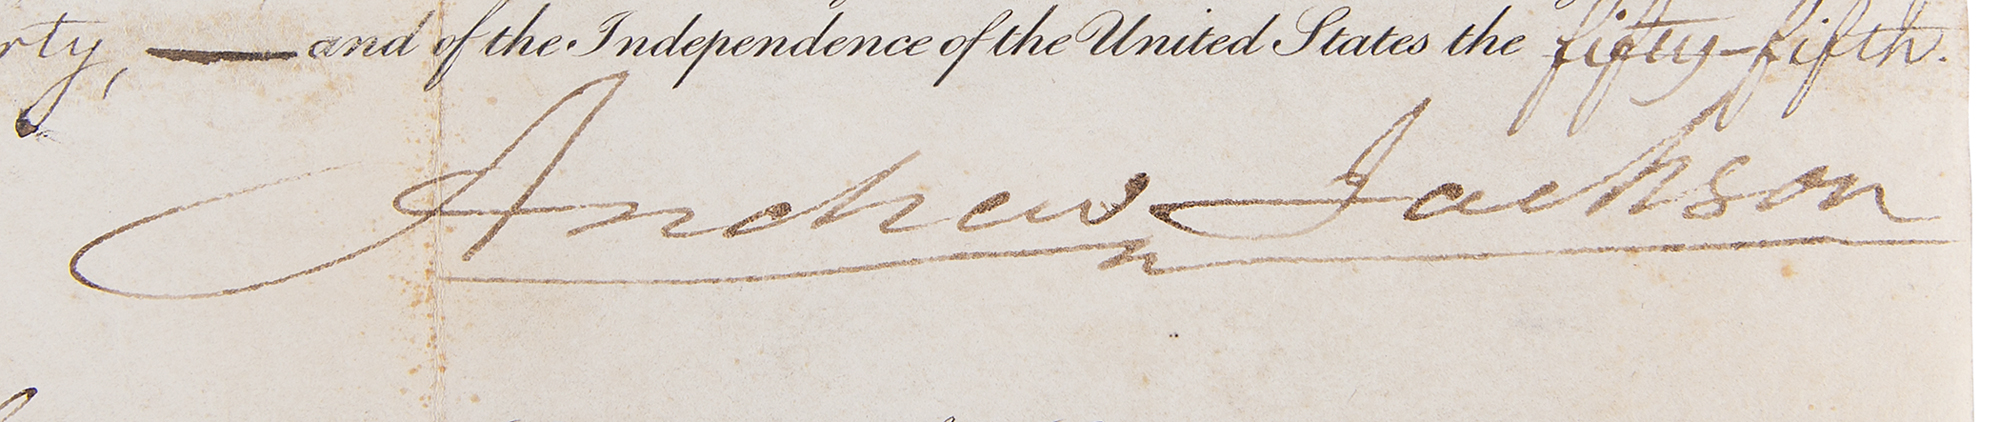 rty, — and of the Independence of the United States the fifty-fifth.
Andrew Jackson